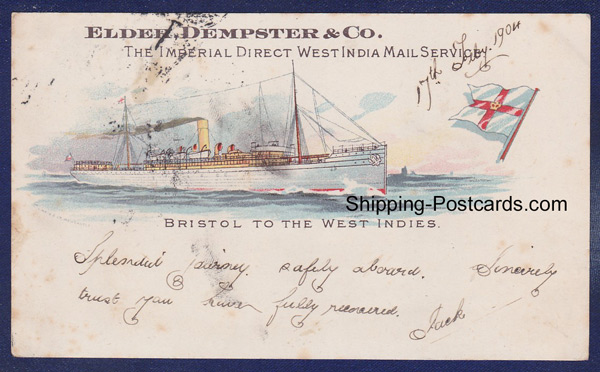 ELDER, DEMPSTER & CO.
THE IMPERIAL DIRECT WEST INDIA MAIL SERVICE.
17th Feby. 1904
Shipping-Postcards.com
BRISTOL TO THE WEST INDIES.
Splendid journey. safely aboard. Sincerely
trust you have fully recovered.
Jack